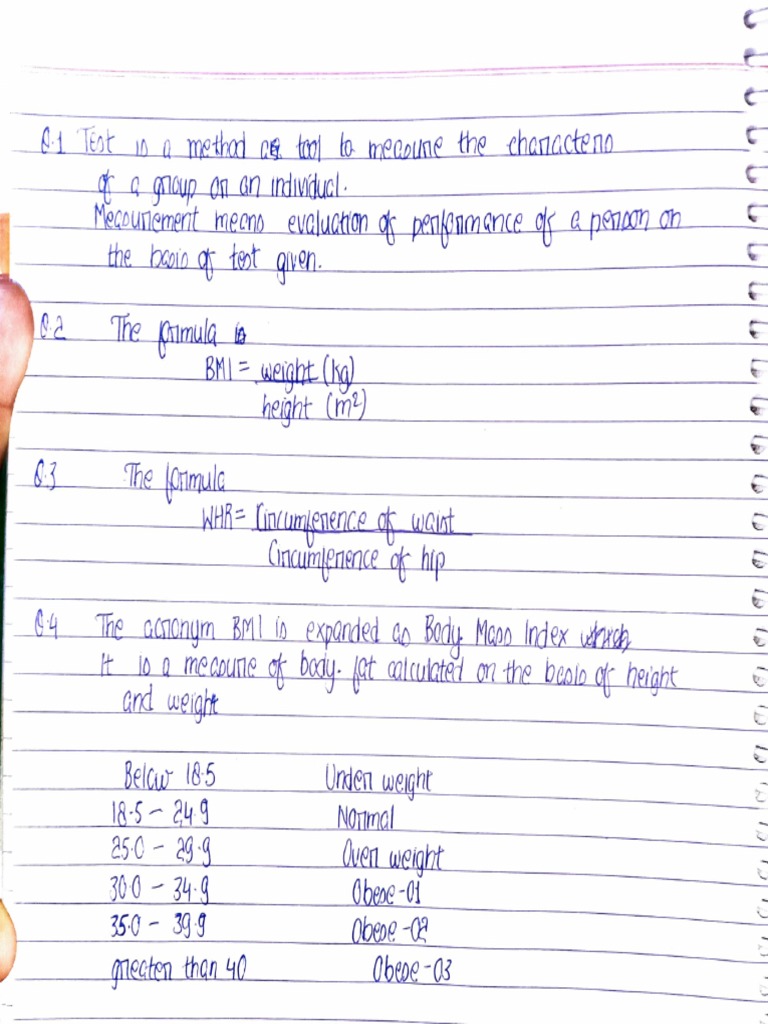 Q.1 Test is a method or tool to measure the characters
of a group or an individual.
Measurement means evaluation of performance of a person on
the basis of test given.
Q.2 The formula is
BMI = weight (kg)
height (m²)
Q.3 The formula
WHR = Circumference of waist
Circumference of hip
Q.4 The acronym BMI is expanded as Body Mass Index which
It is a measure of body. fat calculated on the basis of height
and weight
Below 18.5 Under weight
18.5 – 24.9 Normal
25.0 – 29.9 Over weight
30.0 – 34.9 Obese -01
35.0 – 39.9 Obese -02
greater than 40 Obese -03